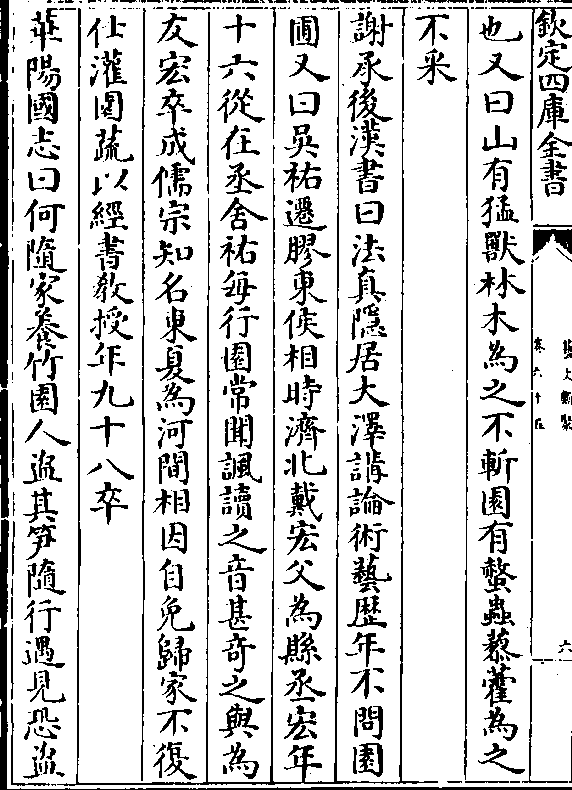 欽定四庫全書
卷六十五
六
也又曰山有猛獸林木為之不斬園有螫蟲藜藿為之
不采
謝承後漢書曰法真隱居大澤講論術藝歴年不問園
圃又曰吳祐遷膠東侯相時濟北戴宏父為縣丞宏年
十六從在丞舍祐每行園常聞諷讀之音甚竒之與為
友宏卒成儒宗知名東夏為河間相因自免歸家不復
仕灌園蔬以經書教授年九十八卒
華陽國志曰何隨家養竹園人盜其笋隨行遇見恐盜